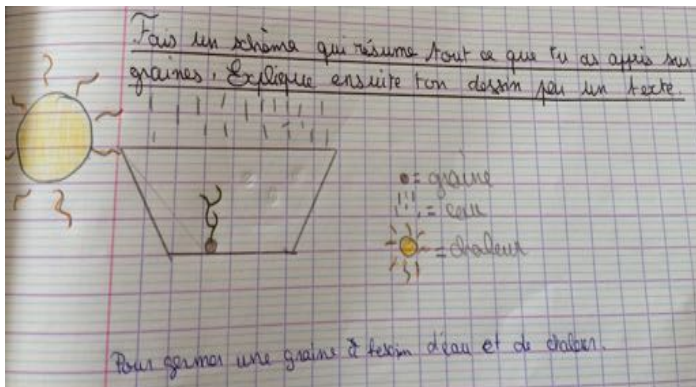 Fais un schéma qui résume tout ce que tu as appris sur
graines. Explique ensuite ton dessin par un texte.
= graine
= eau
= chaleur
Pour germer une graine à besoin d'eau et de chaleur.